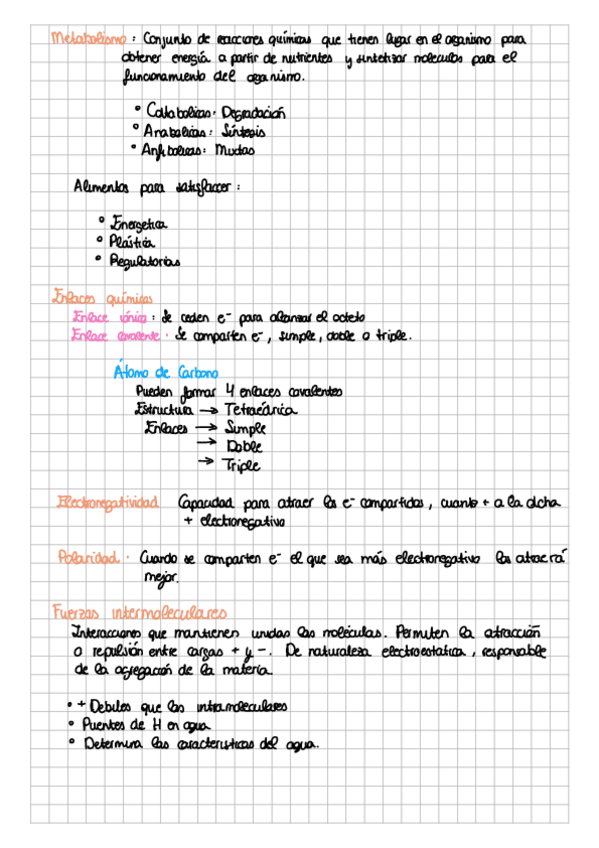 Metabolismo: Conjunto de reacciones químicas que tienen lugar en el organismo para
obtener energía a partir de nutrientes y sintetizar moleculas para el
funcionamiento del organismo.
° Catabolicas: Degradación
° Anabolicas: Síntesis
° Anfibolicas: Mixtas
Alimentos para satisfacer:
° Energetica
° Plástica
° Regulatorias
Enlaces químicos
Enlace iónico: Se ceden e⁻ para alcanzar el octeto
Enlace covalente: Se comparten e⁻, simple, doble o triple.
Átomo de Carbono
Pueden formar 4 enlaces covalentes
Estructura → Tetraédrica
Enlaces → Simple
→ Doble
→ Triple
Electronegatividad Capacidad para atraer los e⁻ compartidos, cuanto + a la dcha
+ electronegativo
Polaridad. Cuando se comparten e⁻ el que sea más electronegativo los atraerá
mejor.
Fuerzas intermoleculares
Interacciones que mantienen unidas las moléculas. Permiten la atracción
o repulsión entre cargas + y -. De naturaleza electroestatica, responsable
de la agregación de la materia.
• + Debiles que las intramoleculares
• Puentes de H en agua
• Determina las características del agua.